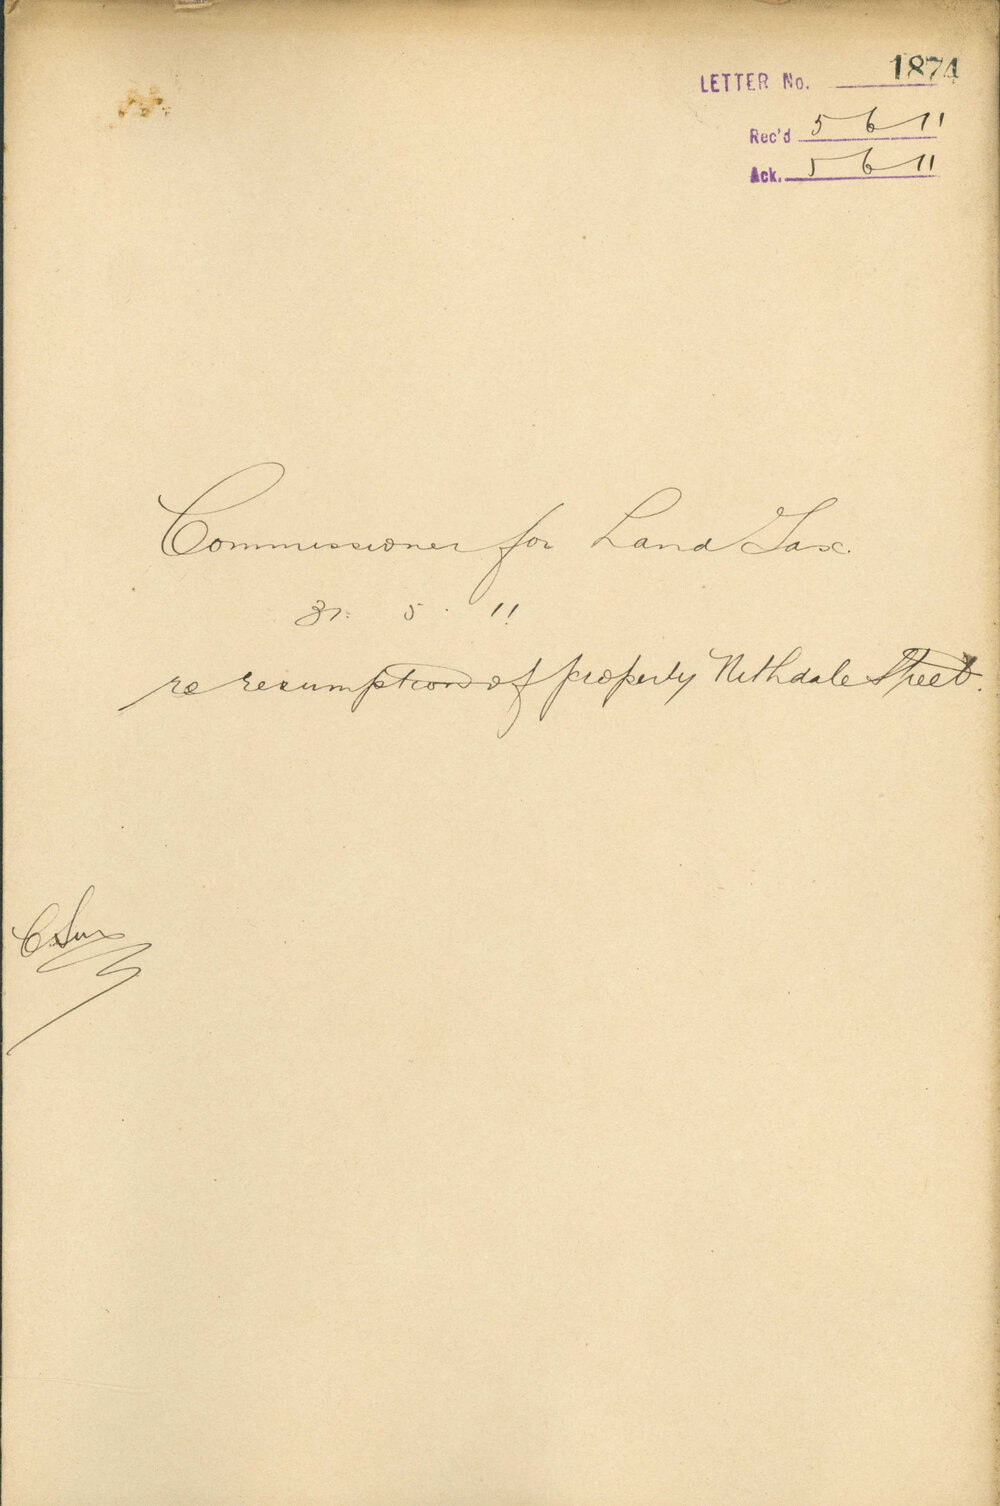 LETTER No. 1874
Rec'd 5 6 11
Ack. 5 6 11
Commissioner for Land Tax.
31. 5. 11
re resumption of property Nithdale Street.